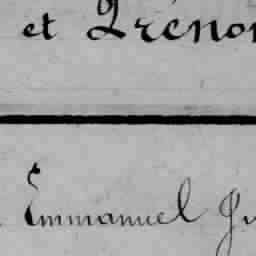 et Prénom
Emmanuel Ju